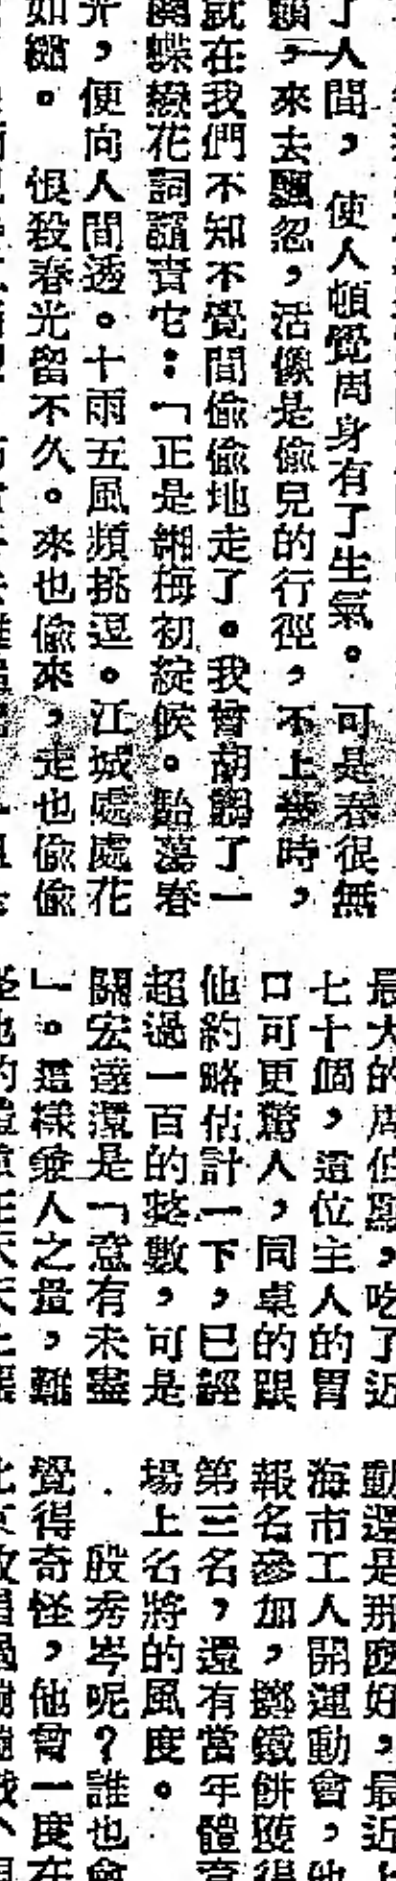 了人間，使人頓覺周身有了生氣。可是春很無
賴，來去飄忽，活像是偷兒的行徑，不上幾時，
就在我們不知不覺間偷偷地走了。我曾胡謅了一
闋蝶戀花詞譴責它：「正是緗梅初綻候。駘蕩春
光，便向人間透。十雨五風頻挑逗。江城處處花
如繡。恨殺春光留不久。來也偷來，走也偷偷
最大的唐伯點，吃了近
七十個，這位主人的胃
口可更驚人，同桌的跟
他約略估計一下，已經
超過一百的整數，可是
關宏達還是「意有未盡
」。這樣兼人之量，難
動還是那麼好，最近上
海市工人開運動會，他
報名參加，擲鐵餅獲得
第三名，還有當年體育
場上名將的風度。
殷秀岑呢？誰也會
覺得奇怪，他曾一度在